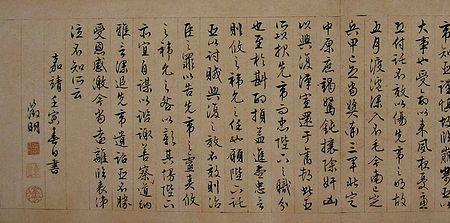 帝知臣謹慎故臨崩寄臣以
大事也受命以來夙夜憂慮
恐付託不效以傷先帝之明故
五月渡瀘深入不毛今南方已定
兵甲已足當獎率三軍北定
中原庶竭駑鈍攘除奸凶
以興復漢室還于舊都此臣
所以報先帝而忠陛下之職分
也至於斟酌損益進盡忠言
則攸之禕允之任也願陛下託
臣以討賊興復之效不效則治
臣之罪以告先帝之靈責攸
之禕允之咎以彰其慢陛下
亦宜自謀以諮諏善道察納
雅言深追先帝遺詔臣不勝
受恩感激今當遠離臨表涕
泣不知所云
嘉靖壬寅春日書
徵明